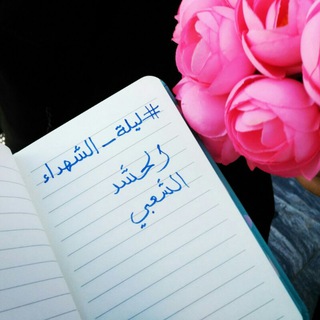 #ليلة_الشهداء
الحشد
الشعبي